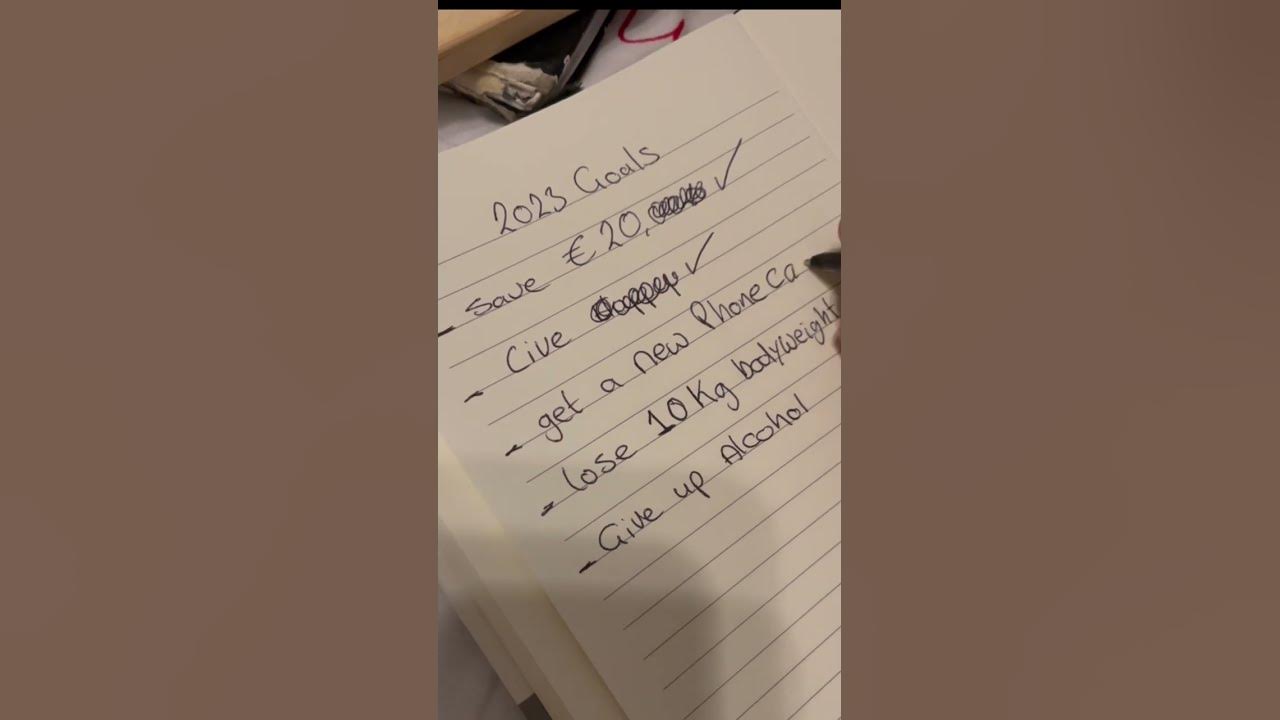 2023 Goals
- Save €20, ✓
- Live ✓
- get a new Phone Ca
- lose 10Kg bodyweight
- Give up Alcohol